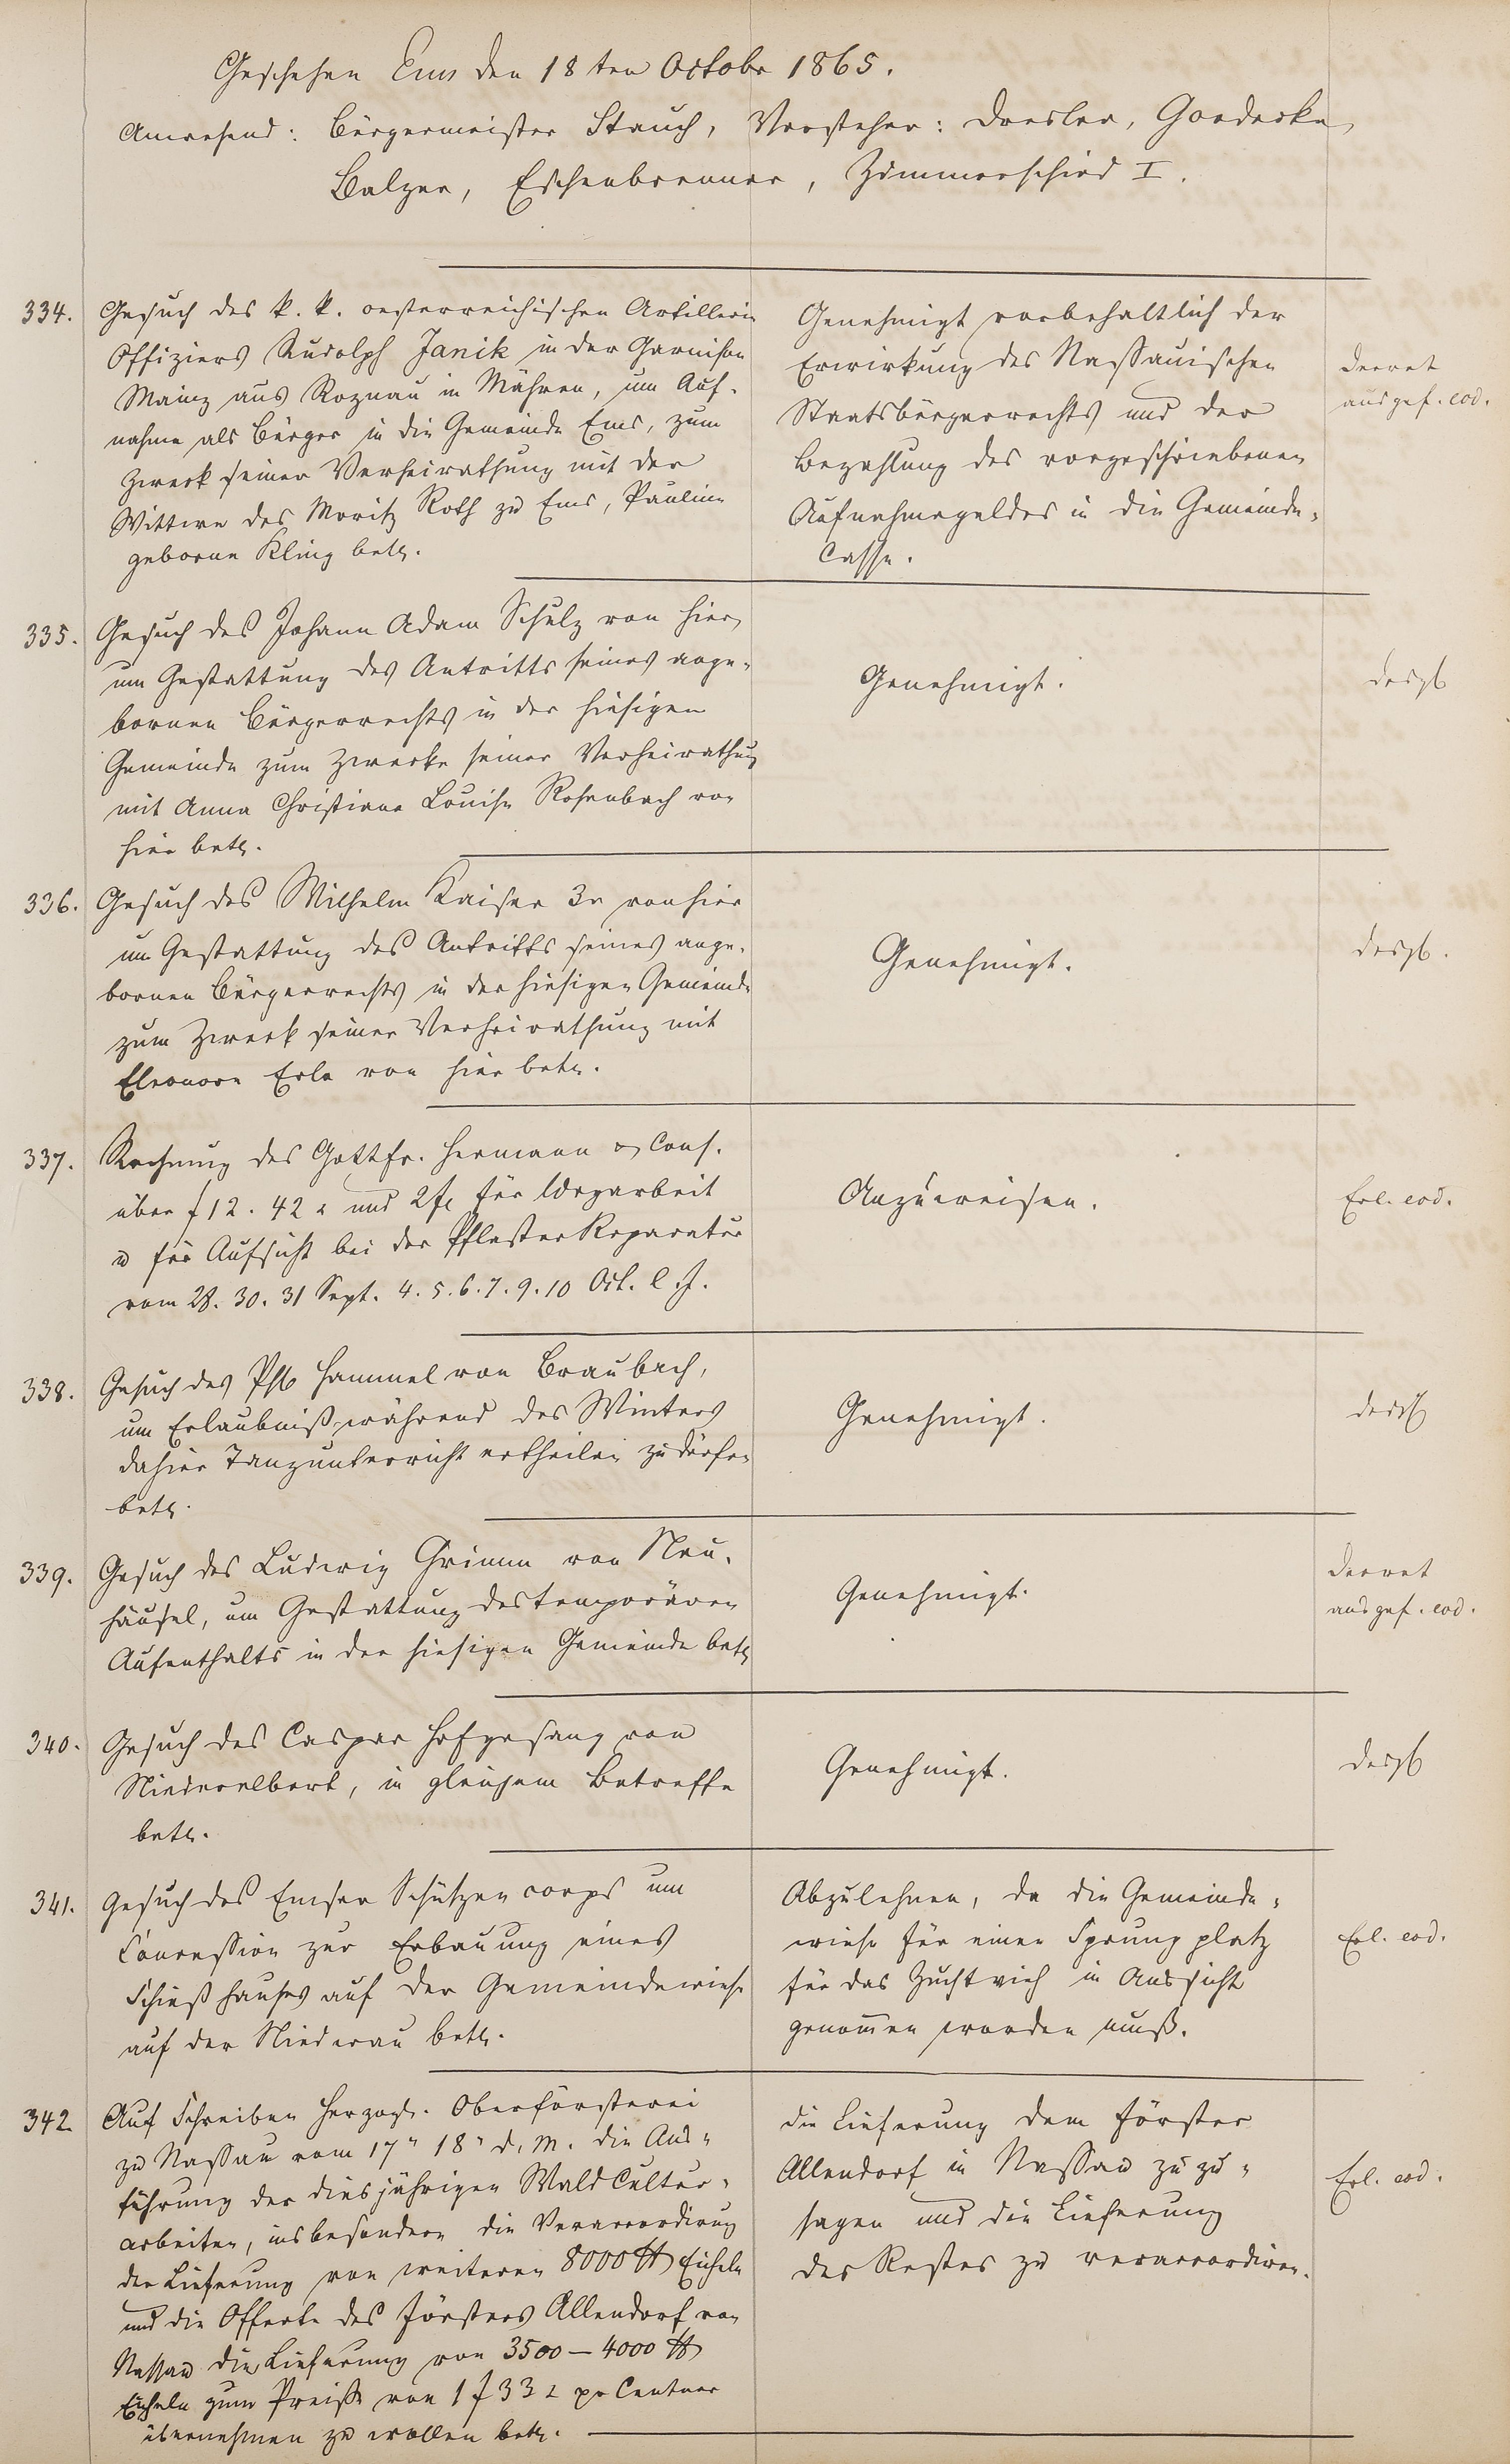 Geschehen Ems den 18ten Octobr 1865.
Anwesend: Bürgermeister Stauch, Vorsteher: Dresler, Goedecke,
Balzer, Eschenbrenner, Zimmerschied I.
334.
Gesuch des k. k. oesterreichischen Artillerie
Offiziers Rudolph Janik in der Garnison
Mainz aus Roznau in Mähren, um Auf-
nahme als Bürger in die Gemeinde Ems, zum
Zweck seiner Verheirathung mit der
Wittwe des Moritz Roth zu Ems, Pauline
geborne Kling betr.
Genehmigt vorbehaltlich der
Erwirkung des Nassauischen
Staatsbürgerrechts und der
Bezahlung des vorgeschriebenen
Aufnahmegeldes in die Gemeinde-
Casse.
Decret
ausgef. eod.
335.
Gesuch des Johann Adam Schulz von hier,
um Gestattung des Antritts seines ange-
bornen Bürgerrechts in der hiesigen
Gemeinde zum Zwecke seiner Verheirathung
mit Anna Christiane Louise Rosenbach von
hier betr.
Genehmigt.
desgl
336.
Gesuch des Wilhelm Kaiser 3r von hier
um Gestattung des Antritts seines ange-
bornen Bürgerrechts in der hiesigen Gemeinde
zum Zweck seiner Verheirathung mit
Eleonore Erle von hier betr.
Genehmigt.
desgl.
337.
Rechnung des Gottfr. Hermann & Cons.
über f 12. 42 x und 2 f für Wegarbeit
u für Aufsicht bei der Pflaster Reparatur
vom 28. 30. 31 Sept. 4. 5. 6. 7. 9. 10 Oct. l. J.
Anzuweisen.
Erl. eod.
338.
Gesuch des Phl Hammel von Braubach,
um Erlaubniß während des Winters
dahier Tanzunterricht ertheilen zu dürfen
betr.
Genehmigt.
desgl
339.
Gesuch des Ludwig Grimm von Neu-
häusel, um Gestattung des temporären
Aufenthalts in der hiesigen Gemeinde betr
Genehmigt.
Decret
ausgef. eod.
340.
Gesuch des Caspar Hofgesang von
Niederelbert, in gleichem Betreffe
betr.
Genehmigt.
desgl
341.
Gesuch des Emser Schützencorps um
Concession zur Erbauung eines
Schießhauses auf der Gemeindewiese
auf der Niederau betr.
Abzulehnen, da die Gemeinde-
wiese für einen Sprungplatz
für das Zuchtvieh in Aussicht
genommen werden muß.
Erl. eod.
342
Auf Schreiben Herzogl. Oberförsterei
zu Nassau vom 17" 18" d. M. die Aus-
führung der diesjährigen Wald Cultur-
arbeiten, insbesondere die Veraccordirung
der Lieferung von weiteren 8000 ℔ Eicheln
und die Offerte des Försters Allendorf von
Nassau die Lieferung von 3500 – 4000 ℔
Eicheln zum Preiße von 1 f 33 x pr Centner
übernehmen zu wollen betr.
Die Lieferung dem Förster
Allendorf in Nassau zuzu-
sagen und die Lieferung
des Restes zu veraccordiren.
Erl. eod.